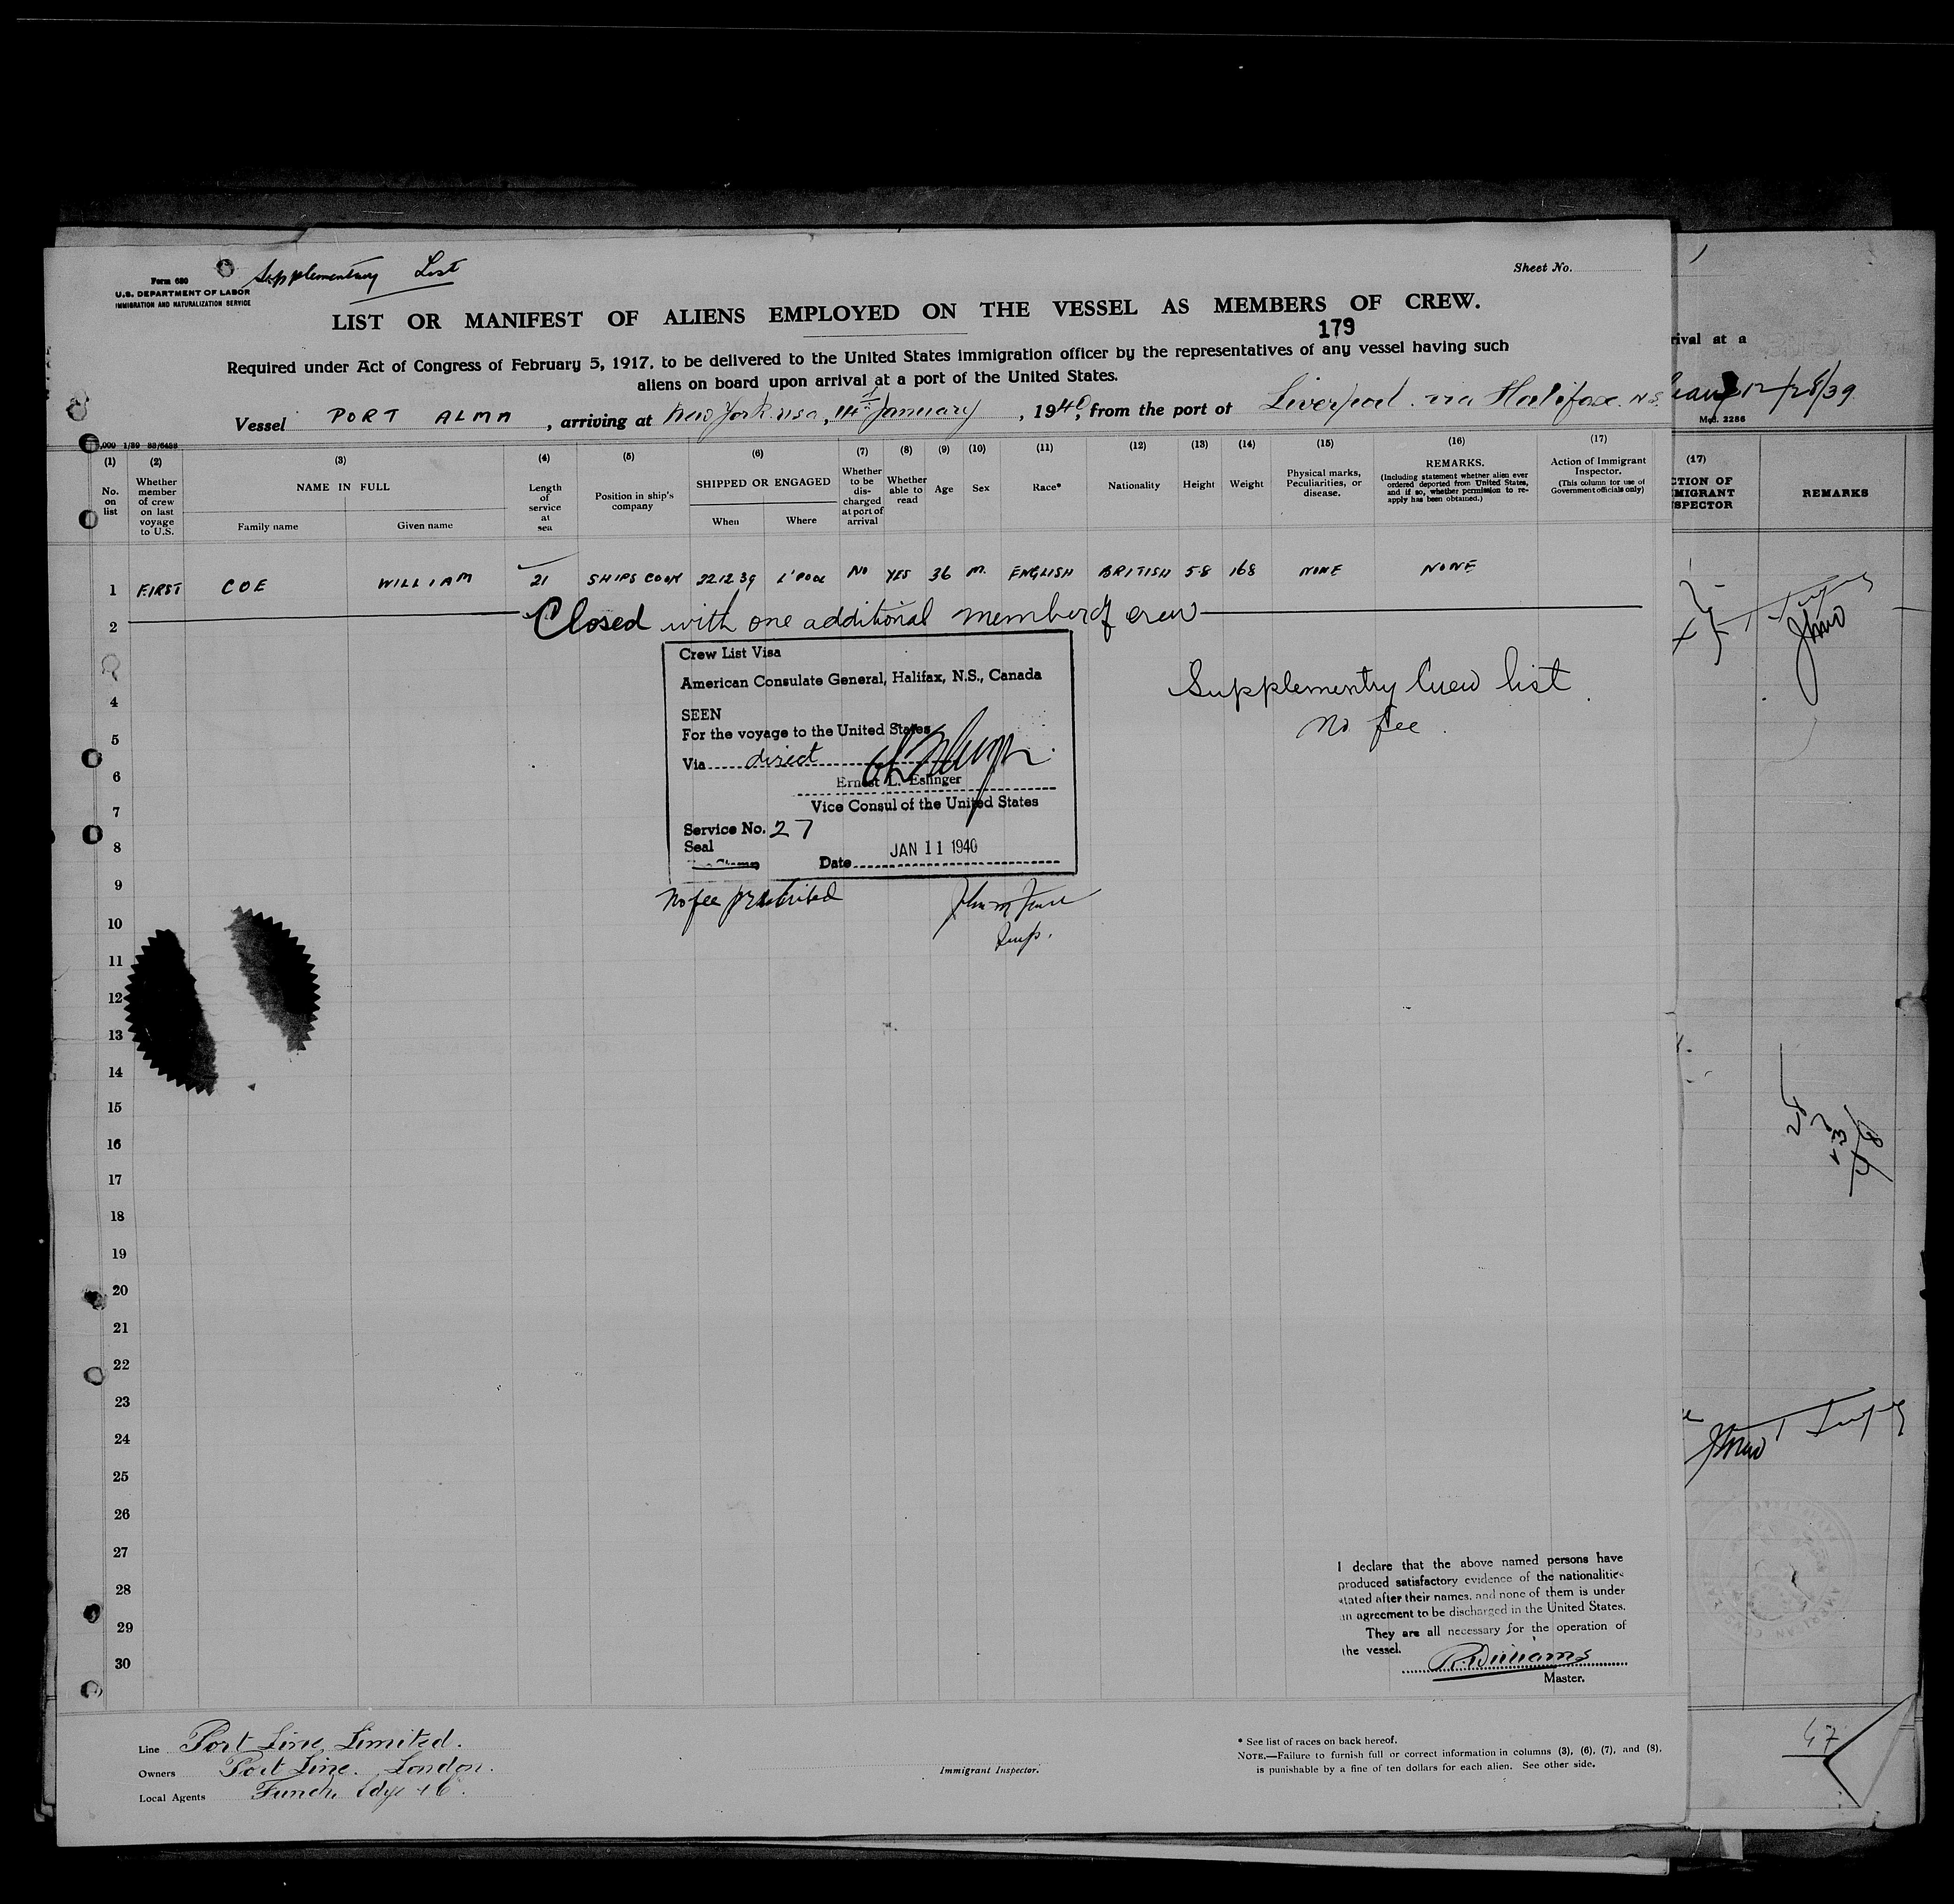 Form 680
U.S. DEPARTMENT OF LABOR
IMMIGRATION AND NATURALIZATION SERVICE
Supplementary List
Sheet No.
LIST OR MANIFEST OF ALIENS EMPLOYED ON THE VESSEL AS MEMBERS OF CREW.
179
Required under Act of Congress of February 5, 1917, to be delivered to the United States immigration officer by the representatives of any vessel having such
aliens on board upon arrival at a port of the United States.
Vessel PORT ALMA, arriving at New York USA, 14th January, 1940, from the port of Liverpool via Halifax N.S.
(1) No. on list
(2) Whether member of crew on last voyage to U.S.
(3) NAME IN FULL
Family name
Given name
(4) Length of service at sea
(5) Position in ship's company
(6) SHIPPED OR ENGAGED
When
Where
(7) Whether to be discharged at port of arrival
(8) Whether able to read
(9) Age
(10) Sex
(11) Race*
(12) Nationality
(13) Height
(14) Weight
(15) Physical marks, Peculiarities, or disease.
(16) REMARKS.
(Including statement whether alien ever ordered deported from United States, and if so, whether permission to re-apply has been obtained.)
(17) Action of Immigrant Inspector.
(This column for use of Government officials only)
1 FIRST COE WILLIAM 21 SHIPS COOK 22 12 39 L'POOL NO YES 36 M. ENGLISH BRITISH 5-8 168 NONE NONE
Closed with one additional member of crew
2
4
5
6
7
8
9
10
11
12
13
14
15
16
17
18
19
20
21
22
23
24
25
26
27
28
29
30
Crew List Visa
American Consulate General, Halifax, N.S., Canada
SEEN
For the voyage to the United States
Via direct
Ernest L. Eslinger
Vice Consul of the United States
Service No. 27
Seal
Date JAN 11 1940
No fee prescribed
Supplementry Crew list
No fee
I declare that the above named persons have
produced satisfactory evidence of the nationalities
stated after their names, and none of them is under
an agreement to be discharged in the United States.
They are all necessary for the operation of
the vessel.
R. Williams
Master.
Line Port Line Limited.
Owners Port Line. London.
Local Agents Funch, Edye & Co.
Immigrant Inspector.
* See list of races on back hereof.
NOTE.—Failure to furnish full or correct information in columns (3), (6), (7), and (8),
is punishable by a fine of ten dollars for each alien. See other side.
rival at a
12/28/39
(17)
CTION OF
MIGRANT
SPECTOR
REMARKS
47